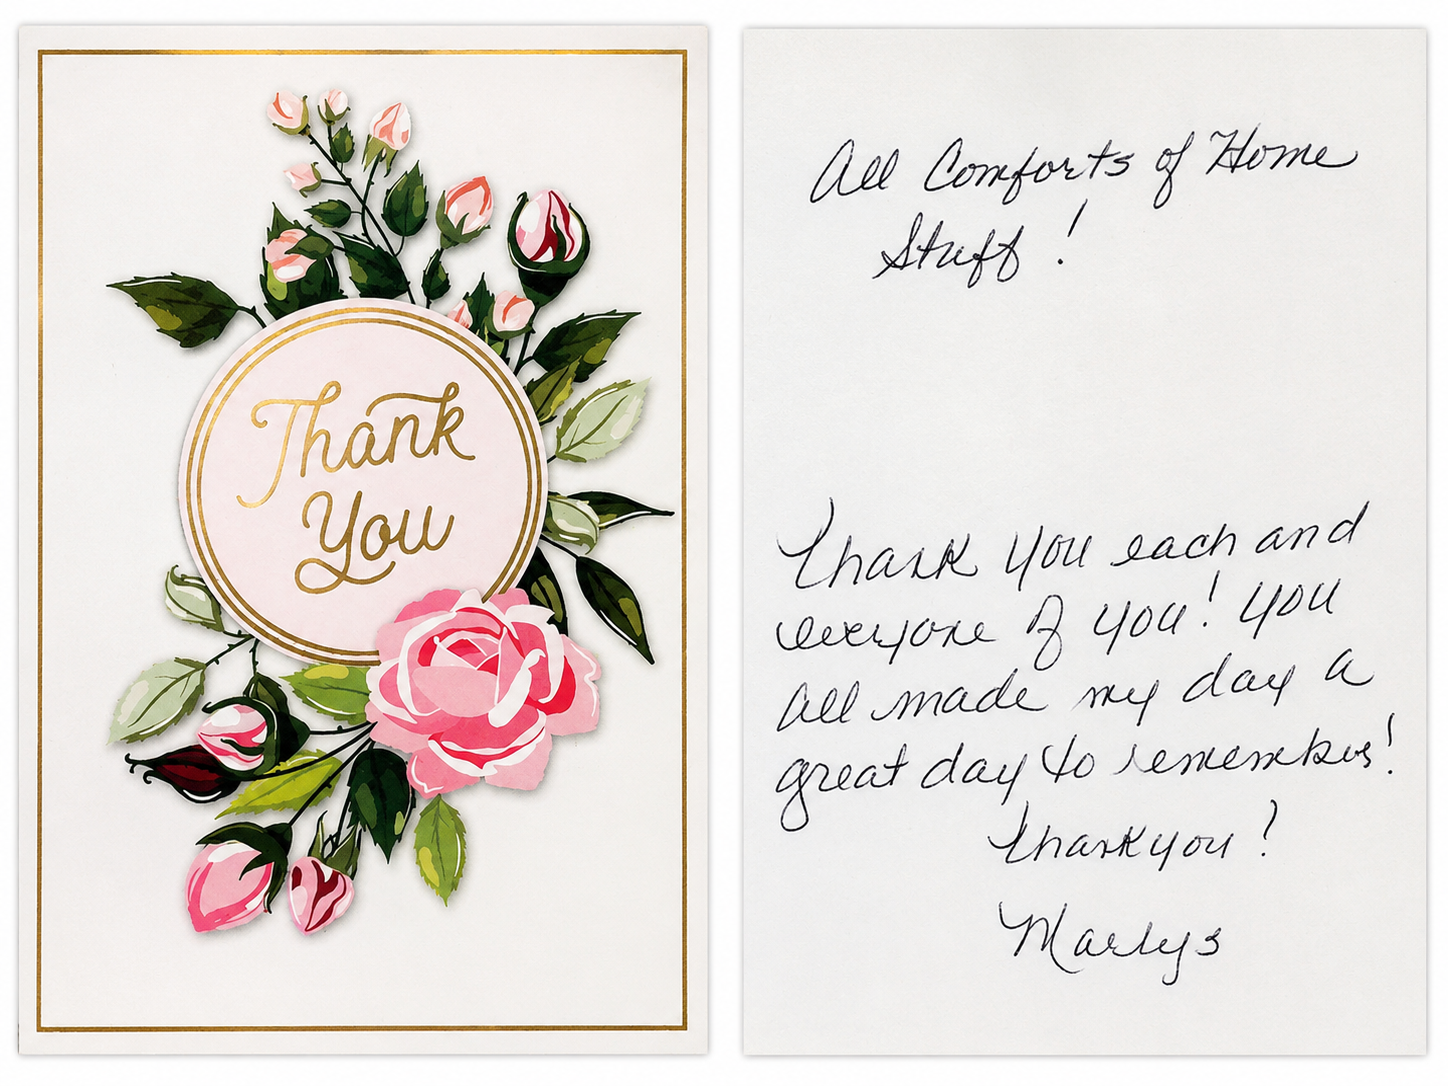 Thank
You
All Comforts of Home
Stuff!
Thank you each and
everyone of you! you
all made my day a
great day to remember!
Thank you!
Marlys